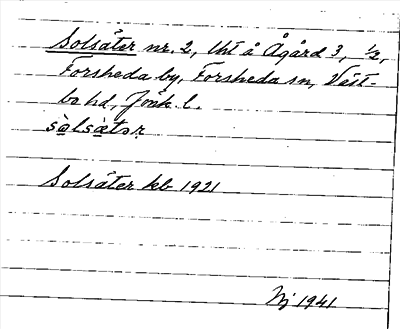 Solsäter nr. 2, lht å Ågård 3, ½,
Forsheda by, Forsheda sn, Väst-
bo hd, Jönk. l.
sòlsàtər
Solsäter kb 1921
Nj 1941